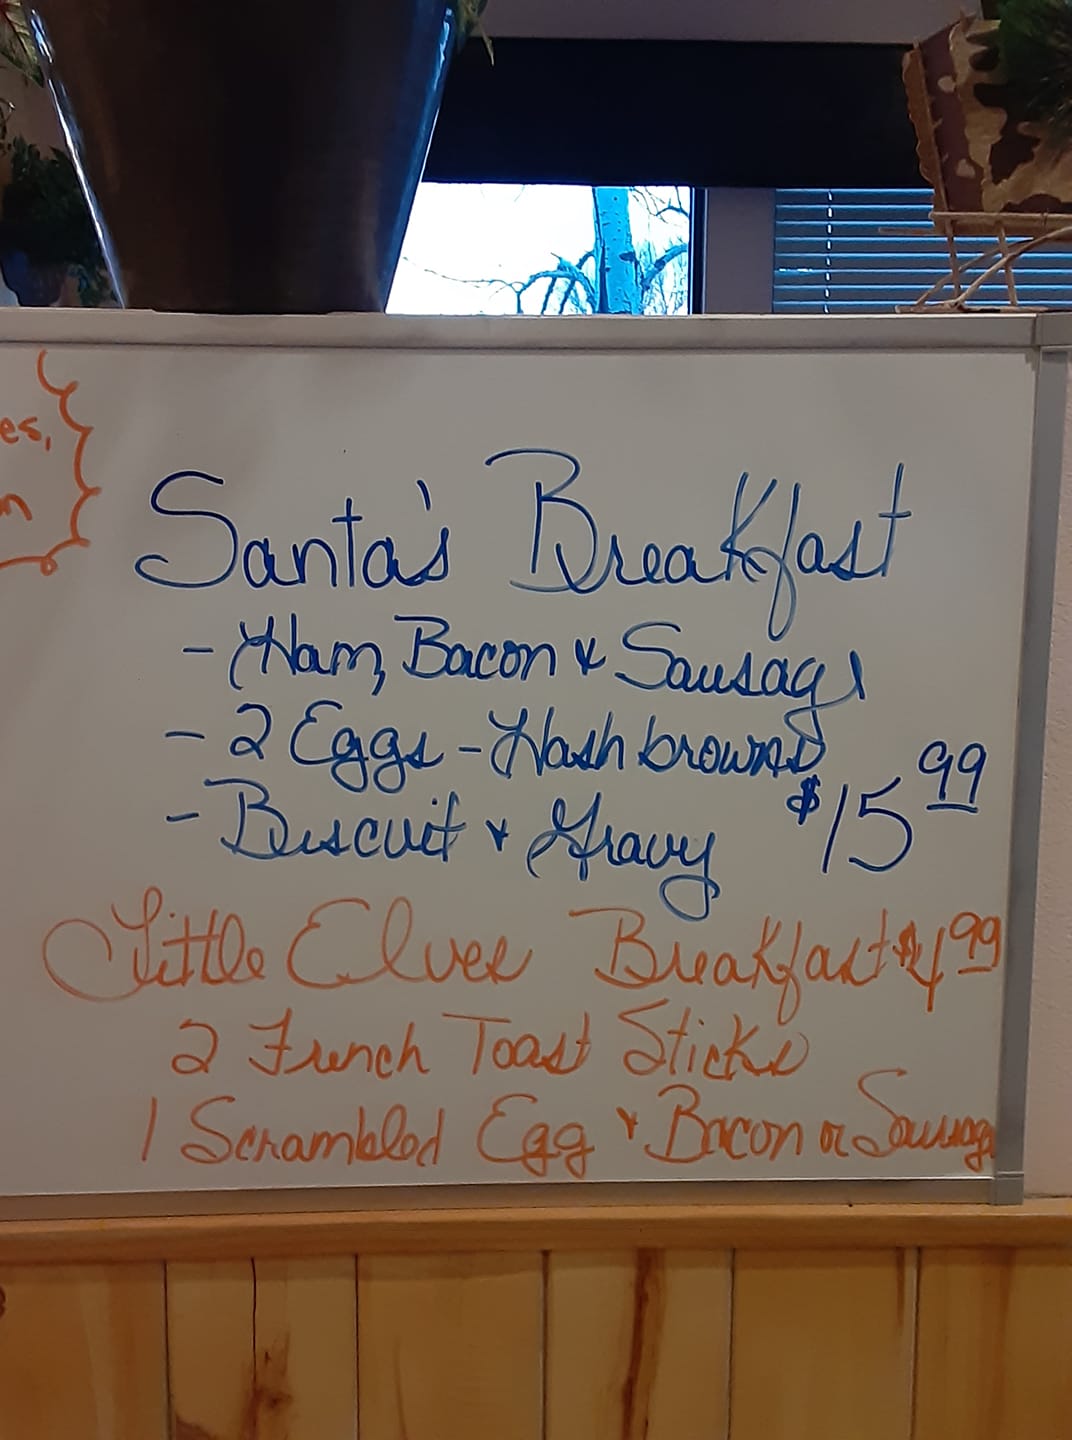 es,
n
Santa's Breakfast
- Ham, Bacon & Sausage
- 2 Eggs - Hashbrowns
- Biscuit & Gravy $15.99
Little Elves Breakfast $4.99
2 French Toast Sticks
1 Scrambled Egg & Bacon or Sausage